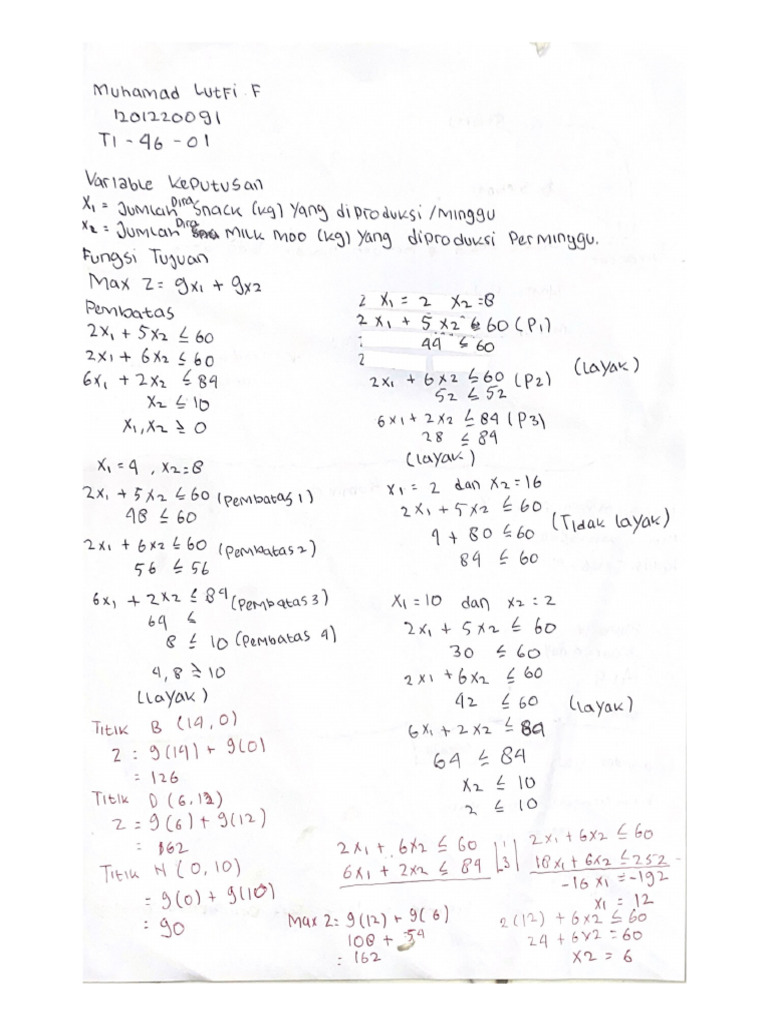 Muhamad Lutfi F
1201220091
TI-46-01
Variable Keputusan
X1 = Jumlah Dira Snack (kg) Yang diproduksi /minggu
X2 = Jumlah Dira Milk Moo (kg) Yang diproduksi Perminggu.
Fungsi Tujuan
Max Z = 9x1 + 9x2
Pembatas
2x1 + 5x2 ≤ 60
2x1 + 6x2 ≤ 60
6x1 + 2x2 ≤ 84
x2 ≤ 10
x1, x2 ≥ 0
X1 = 4, X2 = 8
2x1 + 5x2 ≤ 60 (Pembatas 1)
48 ≤ 60
2x1 + 6x2 ≤ 60 (Pembatas 2)
56 ≤ 56
6x1 + 2x2 ≤ 84 (Pembatas 3)
64 ≤
8 ≤ 10 (Pembatas 4)
4,8 ≥ 10
(layak)
Titik B (14, 0)
Z = 9(14) + 9(0)
= 126
Titik D (6,12)
Z = 9(6) + 9(12)
= 162
Titik N (0, 10)
= 9(0) + 9(10)
= 90
2 X1 = 2 X2 = 8
2x1 + 5x2 ≤ 60 (P1)
44 ≤ 60
2
2x1 + 6x2 ≤ 60 (P2) (layak)
52 ≤ 52
6x1 + 2x2 ≤ 84 (P3)
28 ≤ 84
(layak)
X1 = 2 dan X2 = 16
2x1 + 5x2 ≤ 60
4 + 80 ≤ 60 (Tidak layak)
84 ≤ 60
X1 = 10 dan X2 = 2
2x1 + 5x2 ≤ 60
30 ≤ 60
2x1 + 6x2 ≤ 60
42 ≤ 60 (layak)
6x1 + 2x2 ≤ 84
64 ≤ 84
x2 ≤ 10
2 ≤ 10
2x1 + 6x2 ≤ 60 |1|
6x1 + 2x2 ≤ 84 |3|
2x1 + 6x2 ≤ 60
18x1 + 6x2 ≤ 252 -
-16x1 = -192
x1 = 12
2(12) + 6x2 ≤ 60
24 + 6x2 = 60
x2 = 6
Max Z = 9(12) + 9(6)
108 + 54
= 162